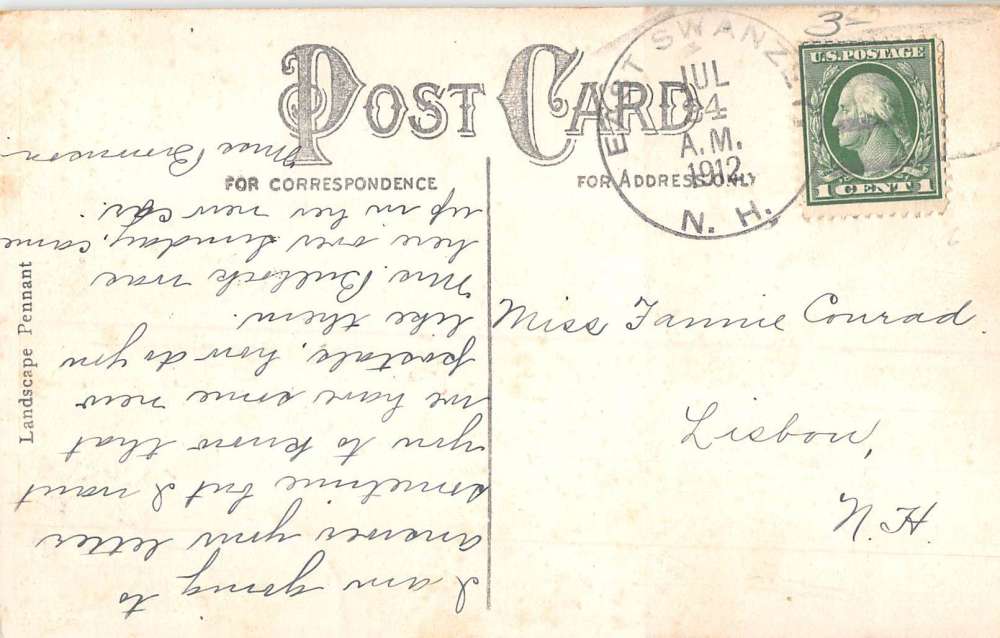 POST CARD
FOR CORRESPONDENCE
FOR ADDRESS ONLY
EAST SWANZEY
JUL
24
A.M.
1912
N. H.
3
U.S. POSTAGE
1 CENT 1
Miss Fannie Conrad.
Lisbon,
N.H.
Landscape Pennant
I am going to
answer your letter
sometime but I want
you to know that
we have some new
postals, how do you
like them.
Mrs. Bullock was
here over Sunday, came
up in her new car.
Mae